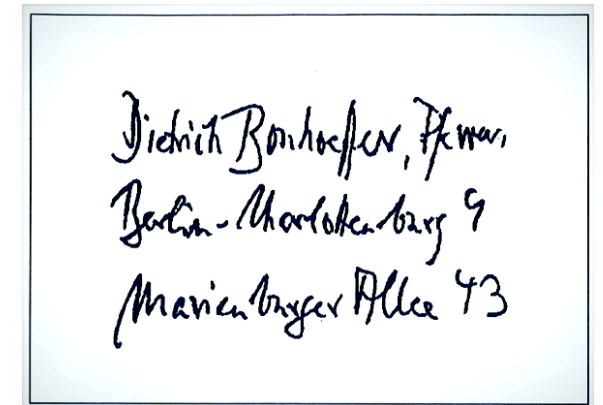 Dietrich Bonhoeffer, Pfarrer,
Berlin-Charlottenburg 9
Marienburger Allee 43